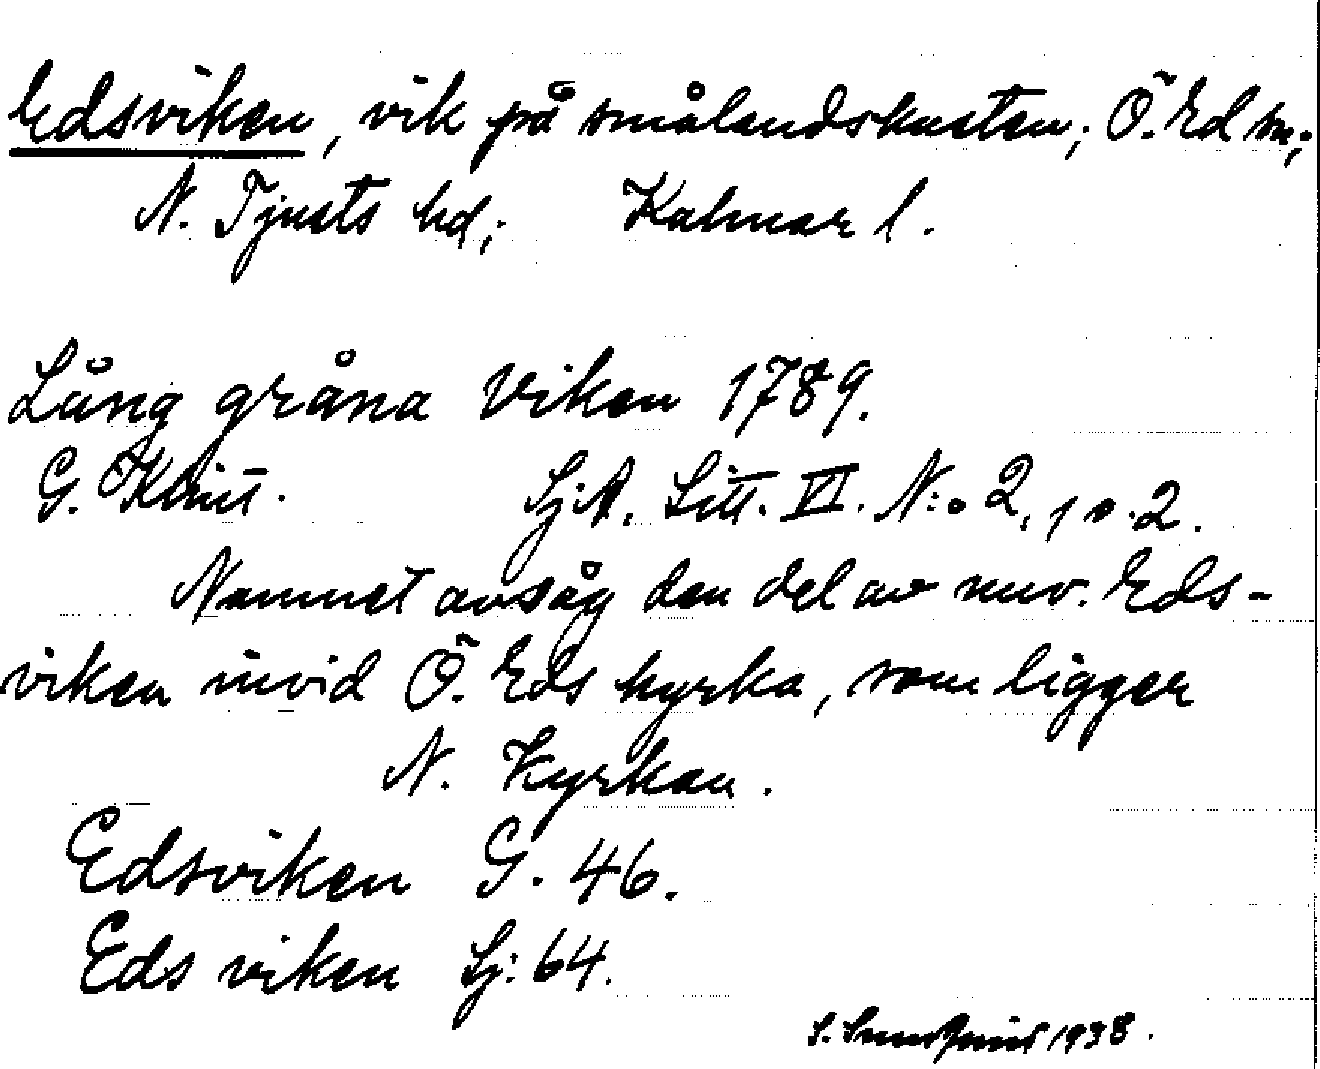 Edsviken, vik på smålandskusten; Ö. Ed sn;
N. Tjusts hd; Kalmar l.
Lång gråna Viken 1789.
G. Klint. Sj:A. Litt. VI. N:o 2, 1 o. 2.
Namnet avsåg den del av nuv. Eds-
viken invid Ö. Eds kyrka, som ligger
N. Kyrkan.
Edsviken G. 46.
Eds viken Sj: 64.
S. Sundquist 1938.